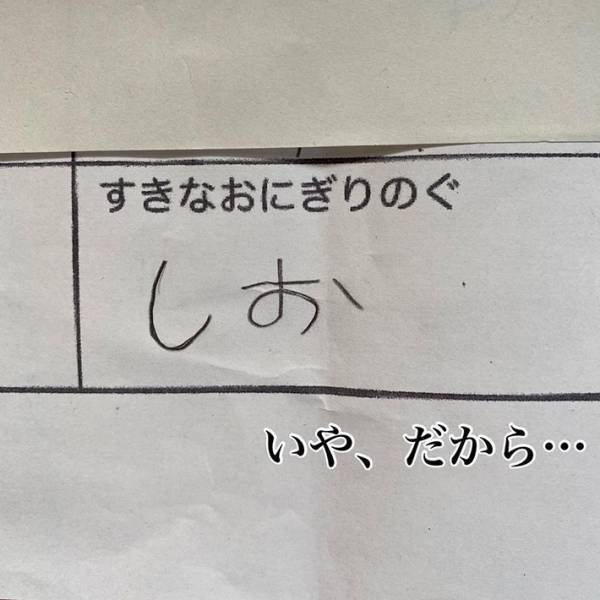 すきなおにぎりのぐ
しお
いや、だから…